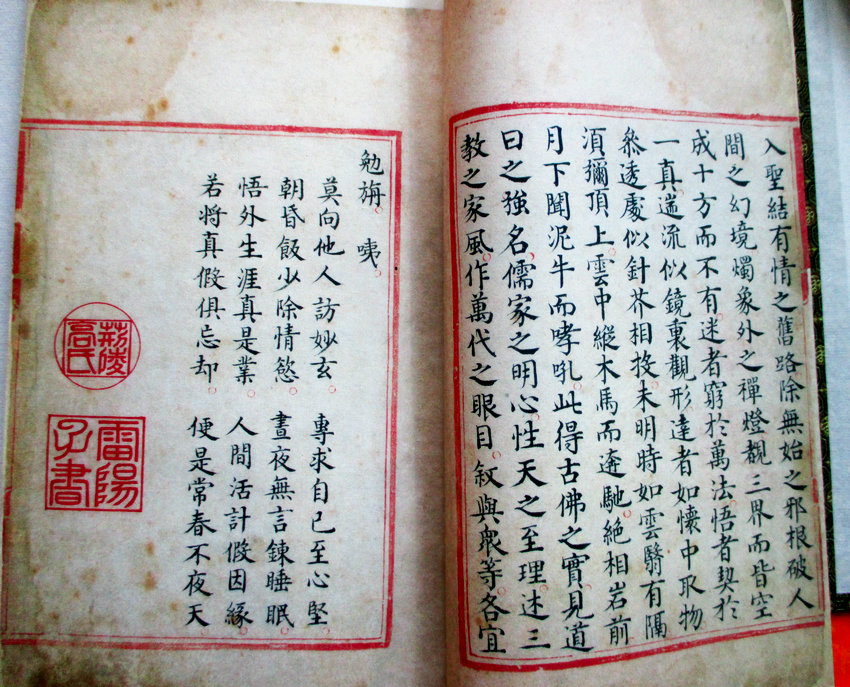 入聖結有情之舊路除無始之邪根破人
間之幻境燭象外之禪燈覩三界而皆空
成十方而不有迷者窮於萬法悟者契於
一真遄流似鏡裏觀形達者如懷中取物
叅透處似針芥相投未明時如雲翳有隔
湏彌頂上雲中縱木馬而遊馳絶相岩前
月下聞泥牛而哮吼此得古佛之實見道
曰之強名儒家之明心性天之至理述三
教之家風作萬代之眼目叙與衆等各宜
勉旃 咦
莫向他人訪妙玄 專求自己至心堅
朝昏飯少除情慾 晝夜無言鍊睡眠
悟外生涯真是業 人間活計假因緣
若將真假俱忘却 便是常春不夜天
荊陵
高氏
雷陽
子書